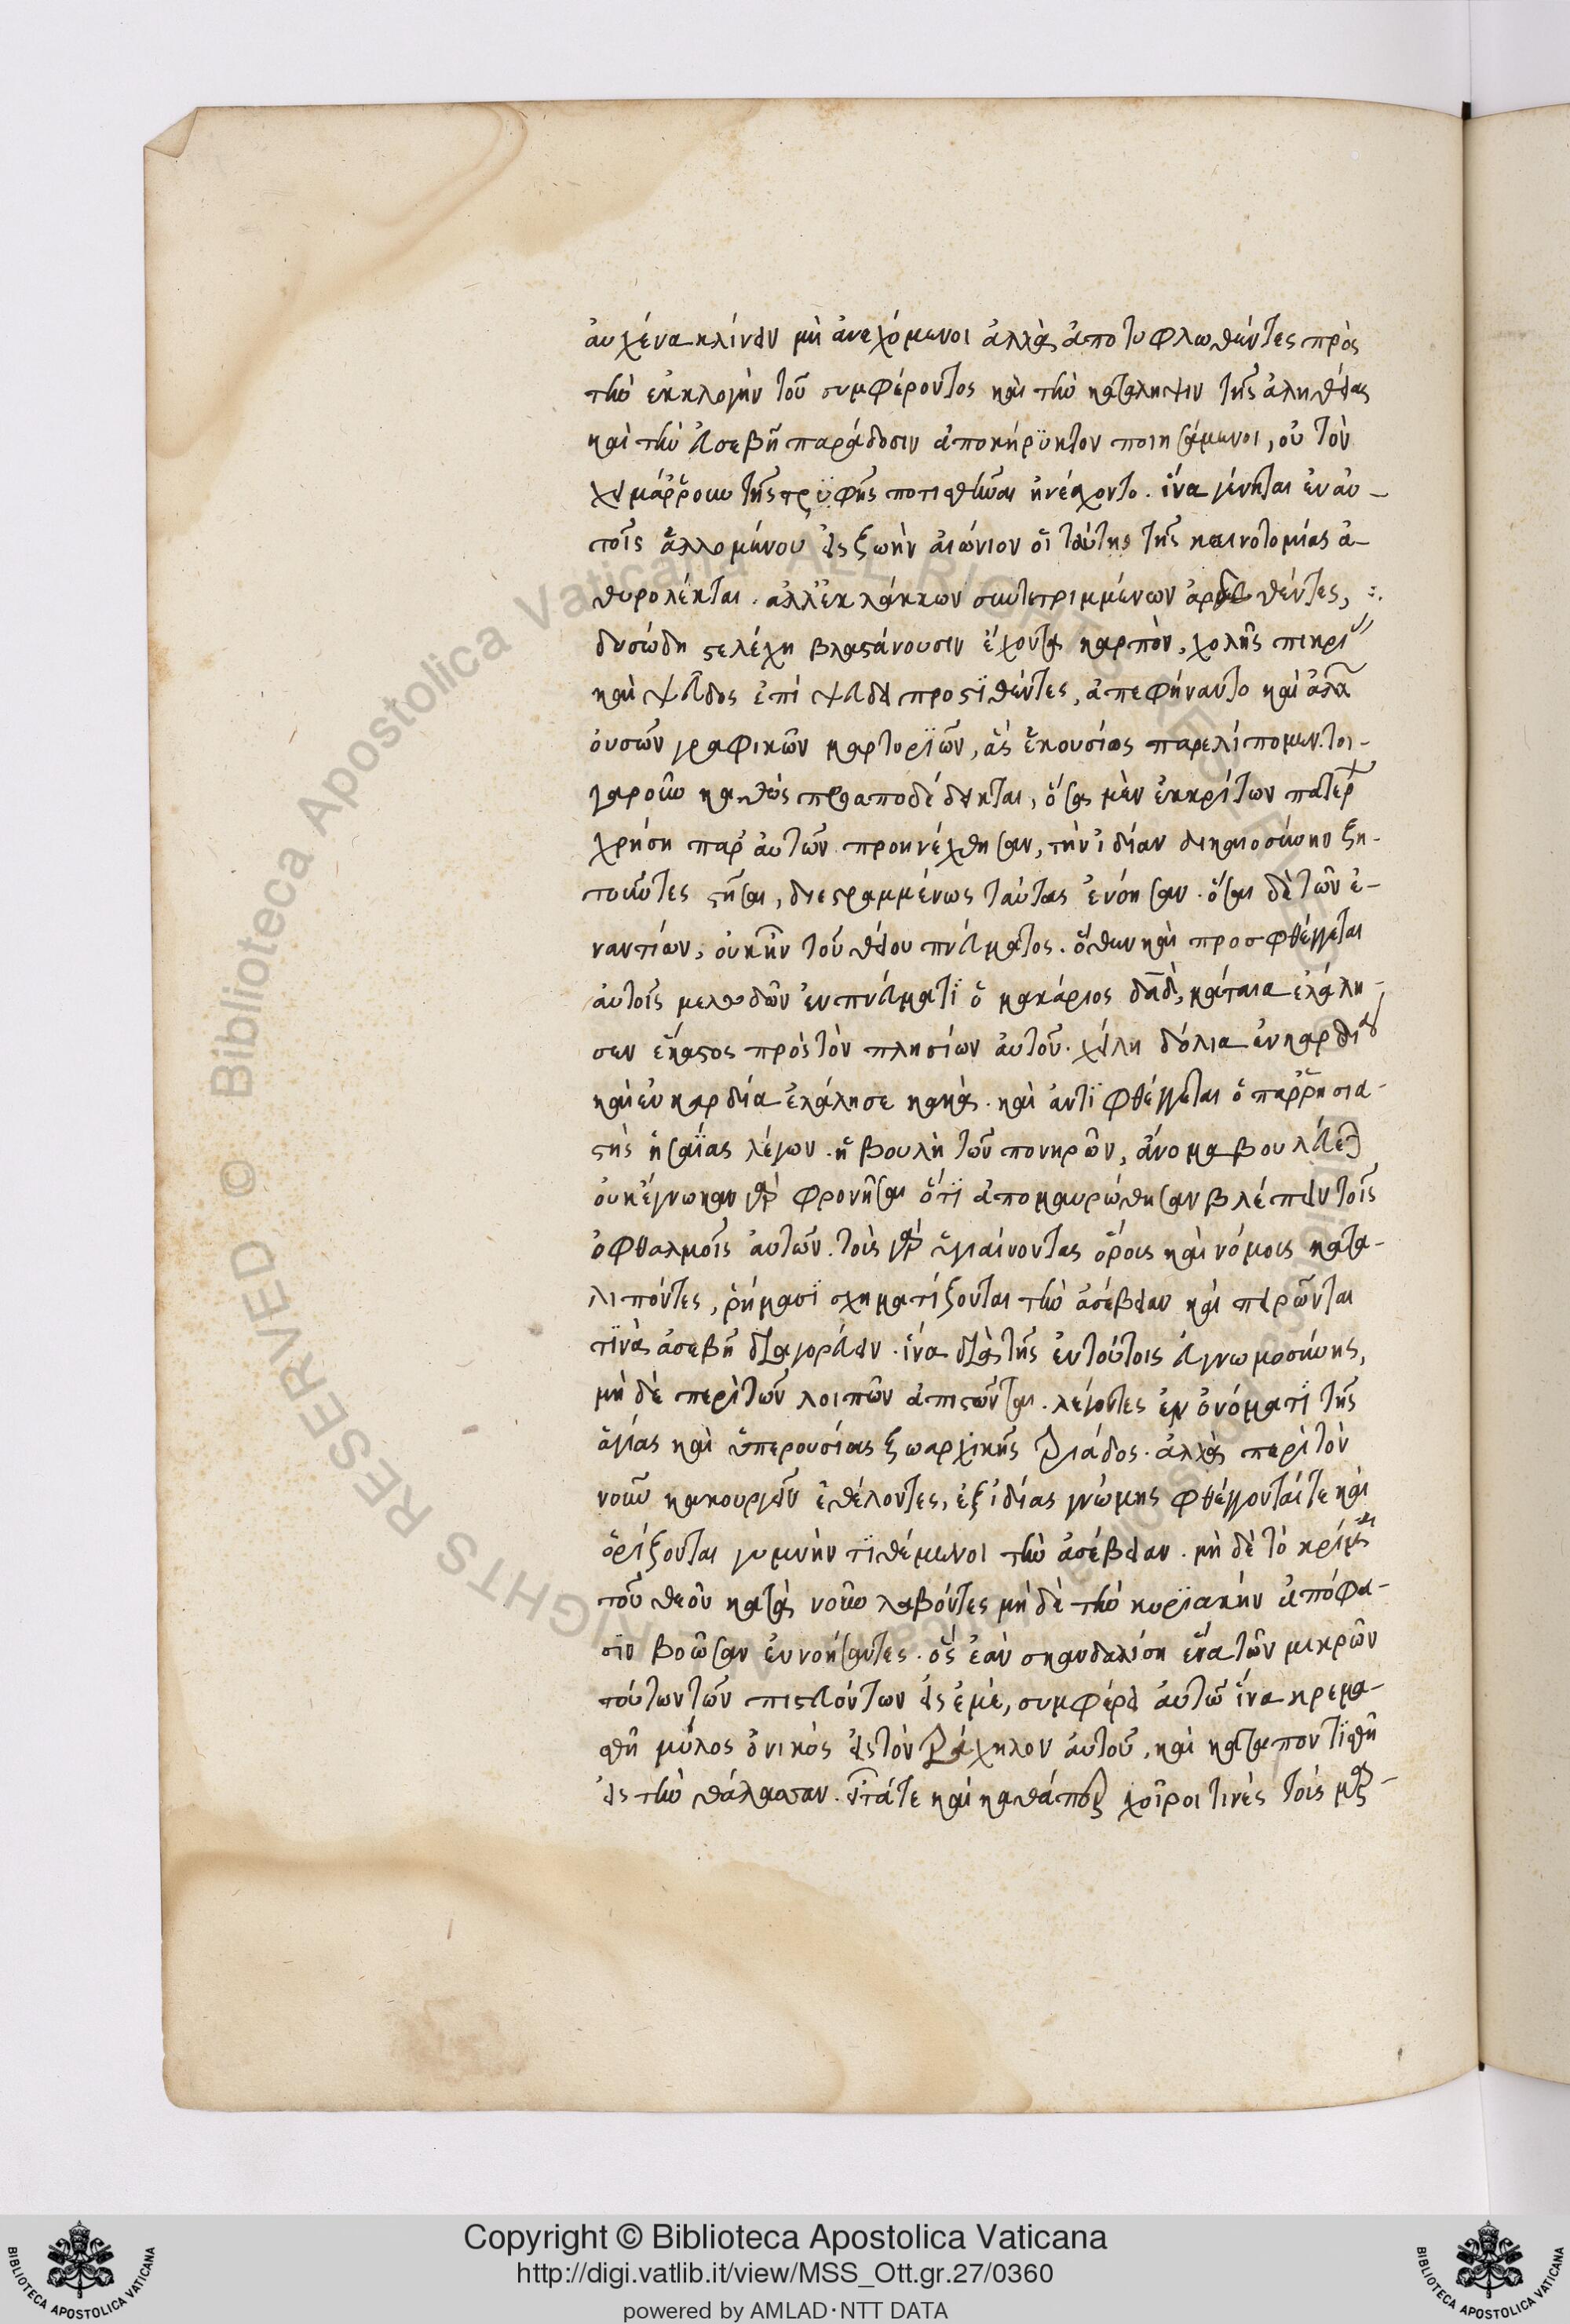 αὐχένα κλίνειν μὴ ἀνεχόμενοι ἀλλὰ ἀποτυφλωθέντες πρὸς
τὴν ἐκλογὴν τοῦ συμφέροντος καὶ τὴν κατάληψιν τῆς ἀληθείας
καὶ τὴν εὐσεβῆ παράδοσιν ἀποκήρϋκτον ποιησάμενοι, οὐ τὸν
χειμάῤῥουν τῆς τρϋφῆς ποτισθῆναι ἠνέσχοντο. ἵνα γένηται ἐν αυ-
τοῖς ἁλλομένου εἰς ζωὴν αἰώνιον οἱ ταύτης τῆς καινοτομίας ἀ-
θυρολέκται. ἀλλ' ἐκ λάκκων συντετριμμένων ἀρδευθέντες,
δυσώδη στελέχη βλαστάνουσιν ἔχοντα καρπὸν, χολῆς πικρί
καὶ ψεῦδος ἐπὶ ψεύδει προστϊθέντες, ἀπεφήναντο καὶ
οὐσῶν γραφικῶν μαρτυρϊῶν, ἃς ἑκουσίως παρελίπομεν. τοι-
γαροῦν καθὼς προαποδέδεικται, ὅσα μὲν ἐκκρίτων πατέρ
χρήση παρ' αὐτῶν προηνέχθησαν, τὴν ἰδίαν δικαιοσύνην ζη-
τοῦντες στῆσαι, διεστραμμένως ταύτας ἐνόησαν. ὅσαι δὲ τῶν ἐ-
ναντίων, οὐκ ἦν τοῦ θείου πνεύματος. ὅθεν καὶ προσφθέγγεται
αὐτοῖς μελωδῶν ἐν πνεύματϊ ὁ μακάριος δᾱδ, μάταια ἐλάλη-
σεν ἕκαστος πρὸς τὸν πλησίων αὐτοῦ. χείλη δόλια ἐν καρδία
καὶ ἐν καρδία ἐλάλησε κακά. καὶ ἀντϊφθέγγεται ὁ παῤῥησια-
στὴς ἡσαΐας λέγων. ἡ βουλὴ τῶν πονηρῶν, ἄνομα βουλεύεται
οὐκ ἔγνωκαν γὰρ φρονῆσαι ὅτϊ ἀπομαυρώθησαν βλέπειν τοῖς
ὀφθαλμοῖς αὐτῶν. τοὺς γὰρ ὑγιαίνοντας ὅροις καὶ νόμοις κατα-
λιπόντες, ῥήμασϊ σχηματίζονται τὴν ἀσέβειαν καὶ πειρῶνται
τϊνὰ ἀσεβῆ διαγορεύειν. ἵνα διὰ τῆς ἐν τούτοις εὐγνωμοσύνης,
μὴ δὲ περὶ τῶν λοιπῶν ἀπιστῶνται. λέγοντες ἐν ὀνόματϊ τῆς
ἁγίας καὶ ὑπερουσίας ζωαρχικῆς τριάδος. ἀλλὰ περὶ τὸν
νοῦν κακουργεῖν ἐθέλοντες, ἐξ ἰδίας γνώμης φθέγγονταί τε καὶ
ὁρίζονται γυμνὴν τϊθέμενοι τὴν ἀσέβειαν. μὴ δὲ τὸ κρίμα
τοῦ θεοῦ κατὰ νοῦν λαβόντες μὴ δὲ τὴν κυρϊακὴν ἀπόφα-
σϊν βοῶσαν ἐννοήσαντες. ὃς ἐὰν σκανδαλίση ἕνα τῶν μικρῶν
τούτων τῶν πιστευόντων εἰς ἐμὲ, συμφέρει αὐτῶ ἵνα κρεμα-
σθῆ μύλος ὀνικὸς εἰς τὸν τράχηλον αὐτοῦ, καὶ καταποντϊσθῆ
εἰς τὴν θάλασσαν. εἶτά τε καὶ καθάπερ χοῖροι τινὲς τοὺς μαρ-
Copyright © Biblioteca Apostolica Vaticana
http://digi.vatlib.it/view/MSS_Ott.gr.27/0360
powered by AMLAD·NTT DATA